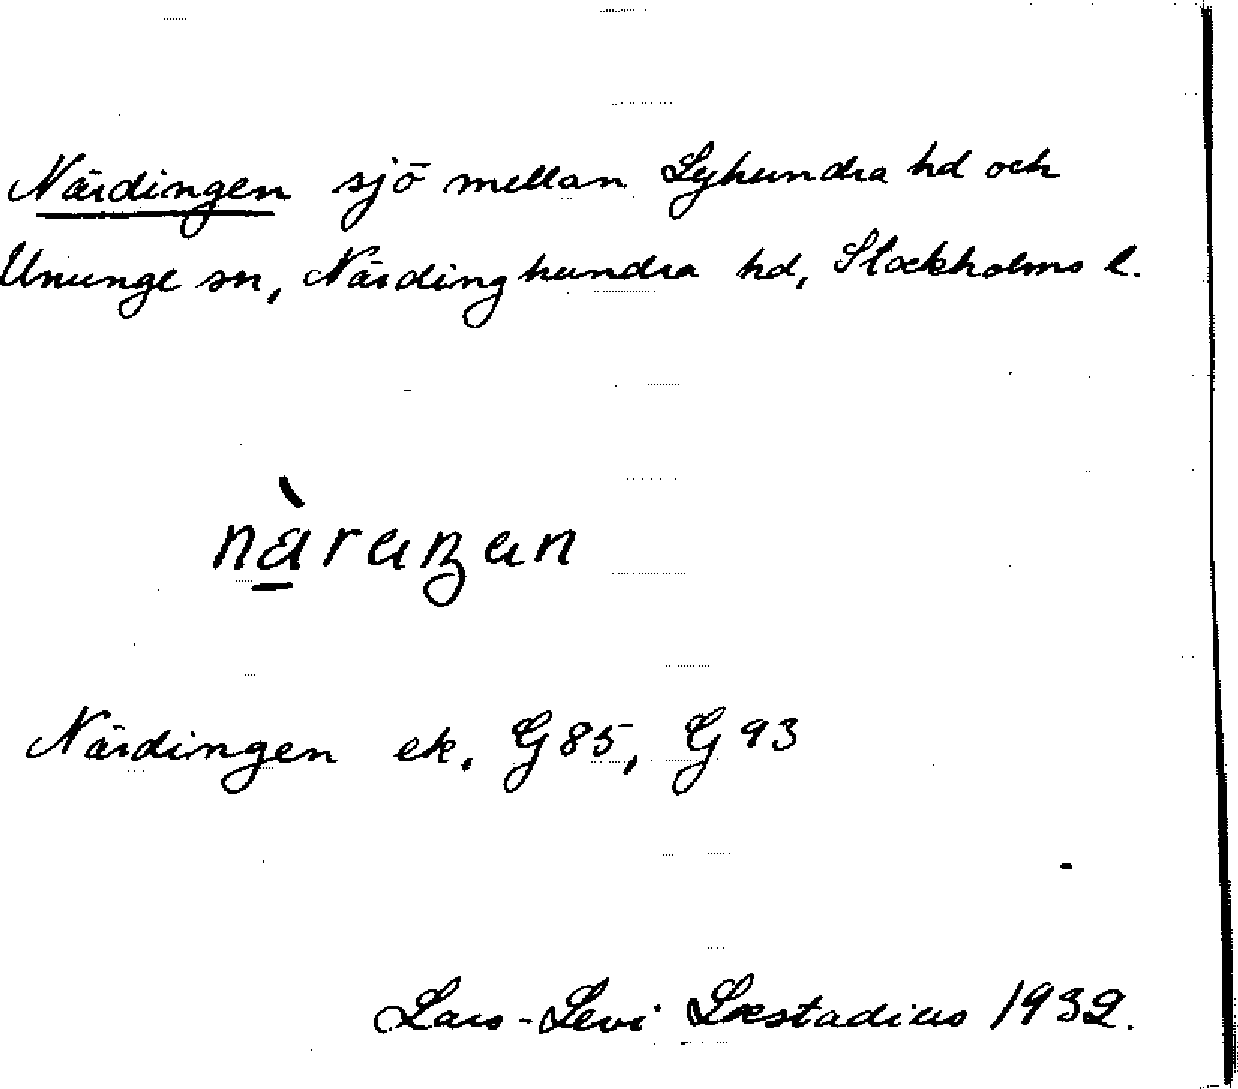 Närdingen sjö mellan Lyhundra hd och
Ununge sn, Närdinghundra hd, Stockholms l.
Närdingen ek. G 85, G 93
Lars-Levi Læstadius 1932.